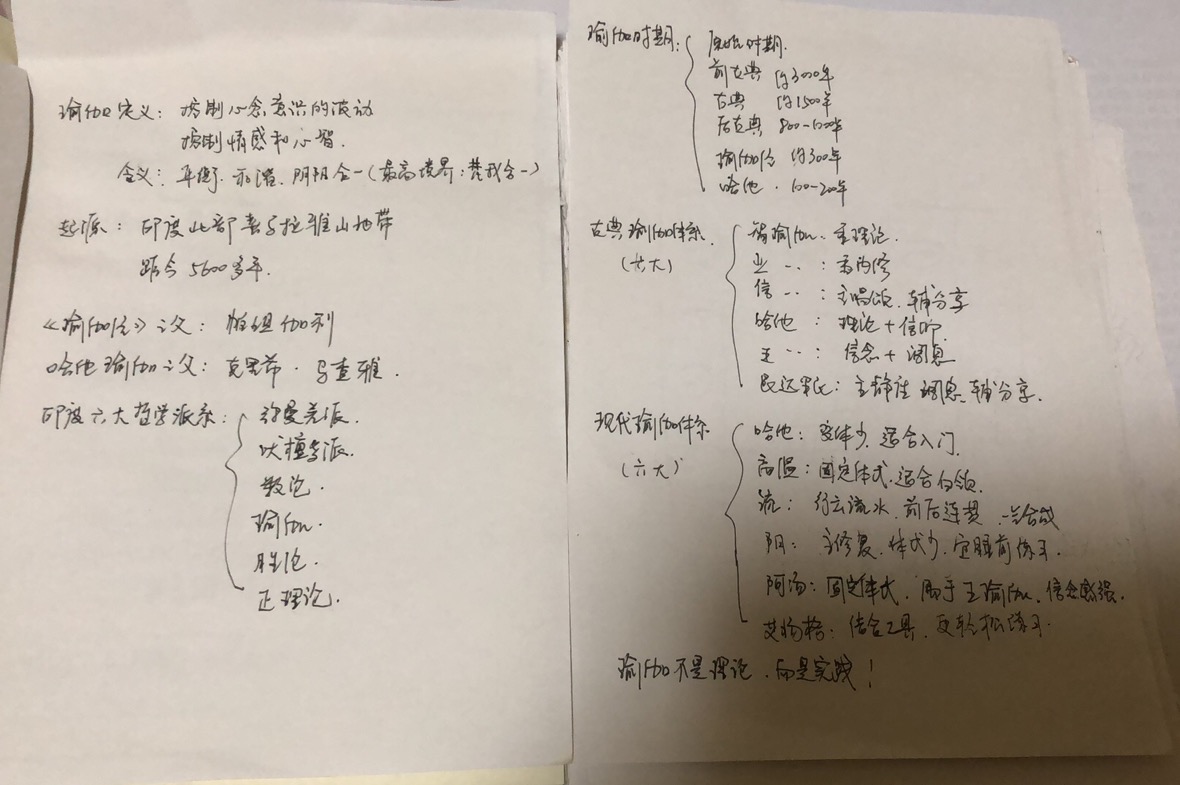 瑜伽定义：控制心念意识的波动
控制情感和心智.
含义：平衡.和谐.阴阳合一(最高境界：梵我合一)
起源：印度北部喜马拉雅山地带
距今5600多年.
《瑜伽经》之父：帕坦伽利
哈他瑜伽之父：克里希·马查雅.
印度六大哲学派系：
弥曼差派.
吠檀多派.
数论.
瑜伽.
胜论.
正理论.
瑜伽时期：
原始时期.
前古典 约3000年
古典 约1500年
后古典 800-1000年
瑜伽经 约300年
哈他. 100-200年
古典瑜伽体系.
(六大)
智瑜伽：主理论.
业 ‥：主内修
信 ‥：主唱颂.辅分享
哈他：理论+信仰
王 ‥：信念+调息
昆达里尼：主静性 调息.辅分享.
现代瑜伽体系
(六大)
哈他：变体少.适合入门.
高温：固定体式.适合白领.
流：行云流水.前后连贯.
阴：主修复.体式少.宜睡前练习.
阿汤：固定体式.属于王瑜伽.信念感强.
艾扬格：结合工具.更轻松练习.
瑜伽不是理论.而是实践！